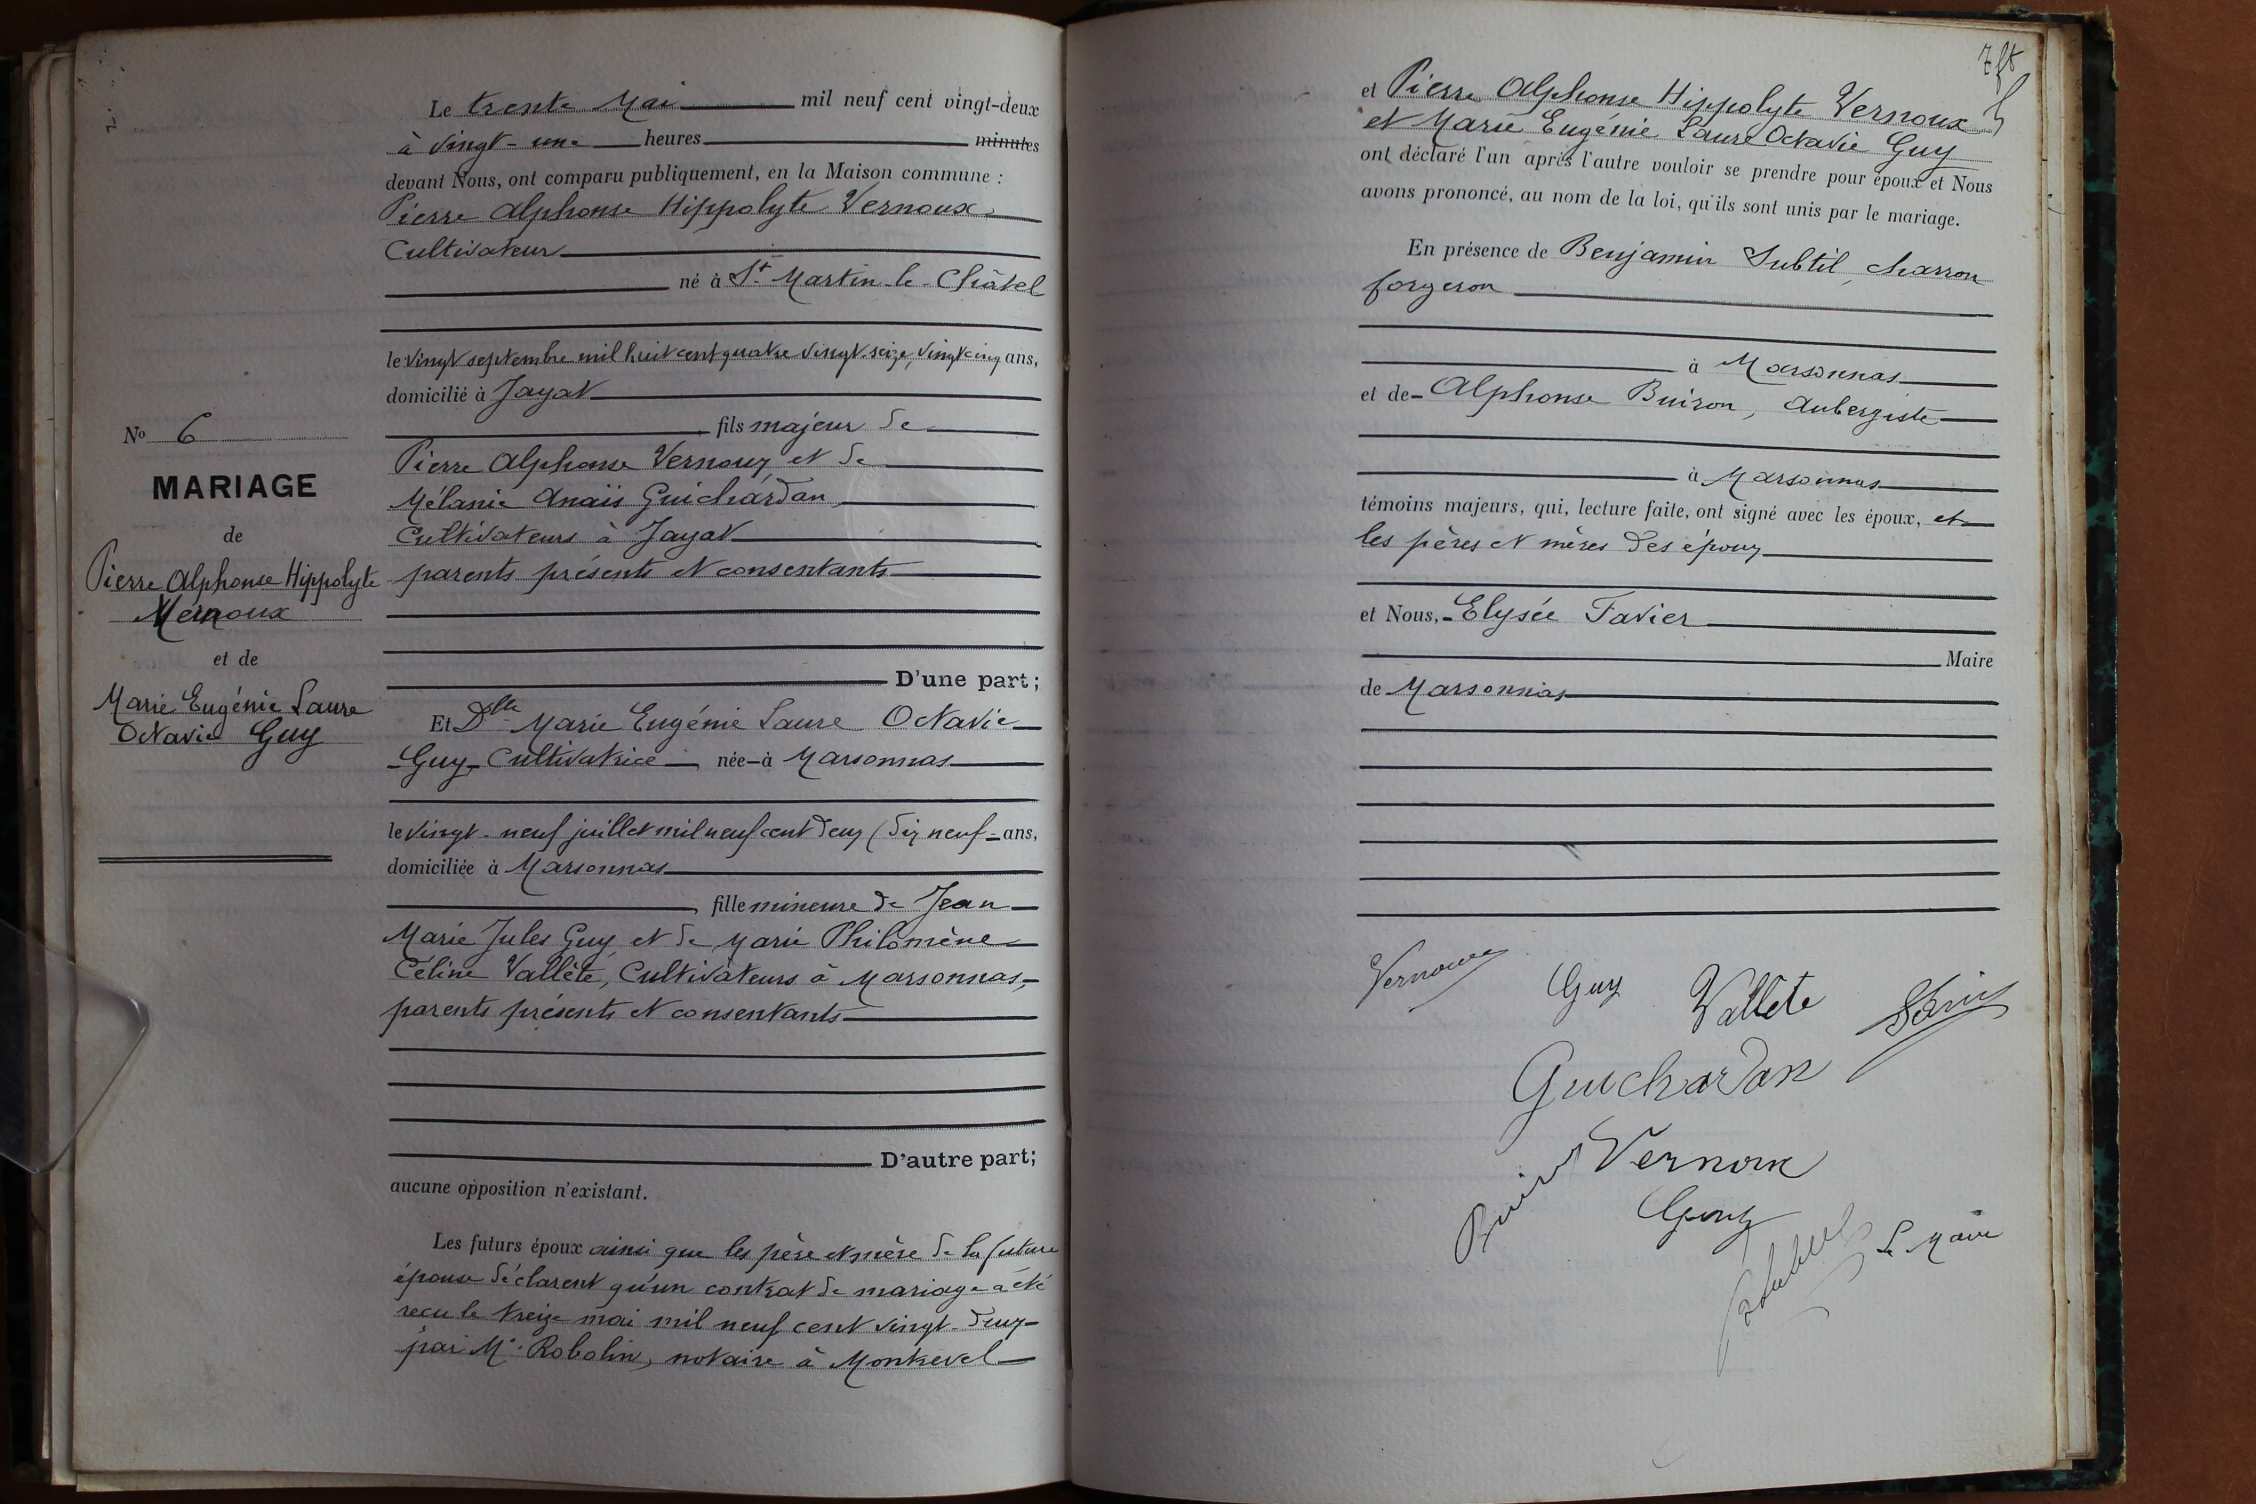 Le trente Mai mil neuf cent vingt-deux
à vingt-une heures minutes
devant Nous, ont comparu publiquement, en la Maison commune :
Pierre Alphonse Hippolyte Vernoux,
Cultivateur
né à St Martin-le-Châtel
le vingt septembre mil huit cent quatre vingt-seize, vingt cinq ans,
domicilié à Jayat
fils majeur de
Pierre Alphonse Vernoux et de
Mélanie Anaïs Guichardan,
Cultivateurs à Jayat
parents présents et consentants
D'une part ;
Et Dlle Marie Eugénie Laure Octavie
Guy, Cultivatrice née à Marsonnas
le vingt-neuf juillet mil neuf cent deux (dix neuf ans,
domiciliée à Marsonnas
fille mineure de Jean
Marie Jules Guy et de Marie Philomène
Céline Vallète, Cultivateurs à Marsonnas,
parents présents et consentants
D'autre part ;
aucune opposition n'existant.
Les futurs époux ainsi que les père et mère de la future
épouse déclarent qu'un contrat de mariage a été
reçu le treize mai mil neuf cent vingt-deux
par Me Robolin, notaire à Montrevel
No 6
MARIAGE
de
Pierre Alphonse Hippolyte
Vernoux
et de
Marie Eugénie Laure
Octavie Guy
et Pierre Alphonse Hippolyte Vernoux
et Marie Eugénie Laure Octavie Guy
ont déclaré l'un après l'autre vouloir se prendre pour époux et Nous
avons prononcé, au nom de la loi, qu'ils sont unis par le mariage.
En présence de Benjamin Subtil, charron
forgeron
à Marsonnas
et de Alphonse Buiron, Aubergiste
à Marsonnas
témoins majeurs, qui, lecture faite, ont signé avec les époux, et
les pères et mères des époux
et Nous, Elysée Favier
Maire
de Marsonnas
Vernoux
Guy Vallète
Guichardan
Vernoux
Guy
Le Maire